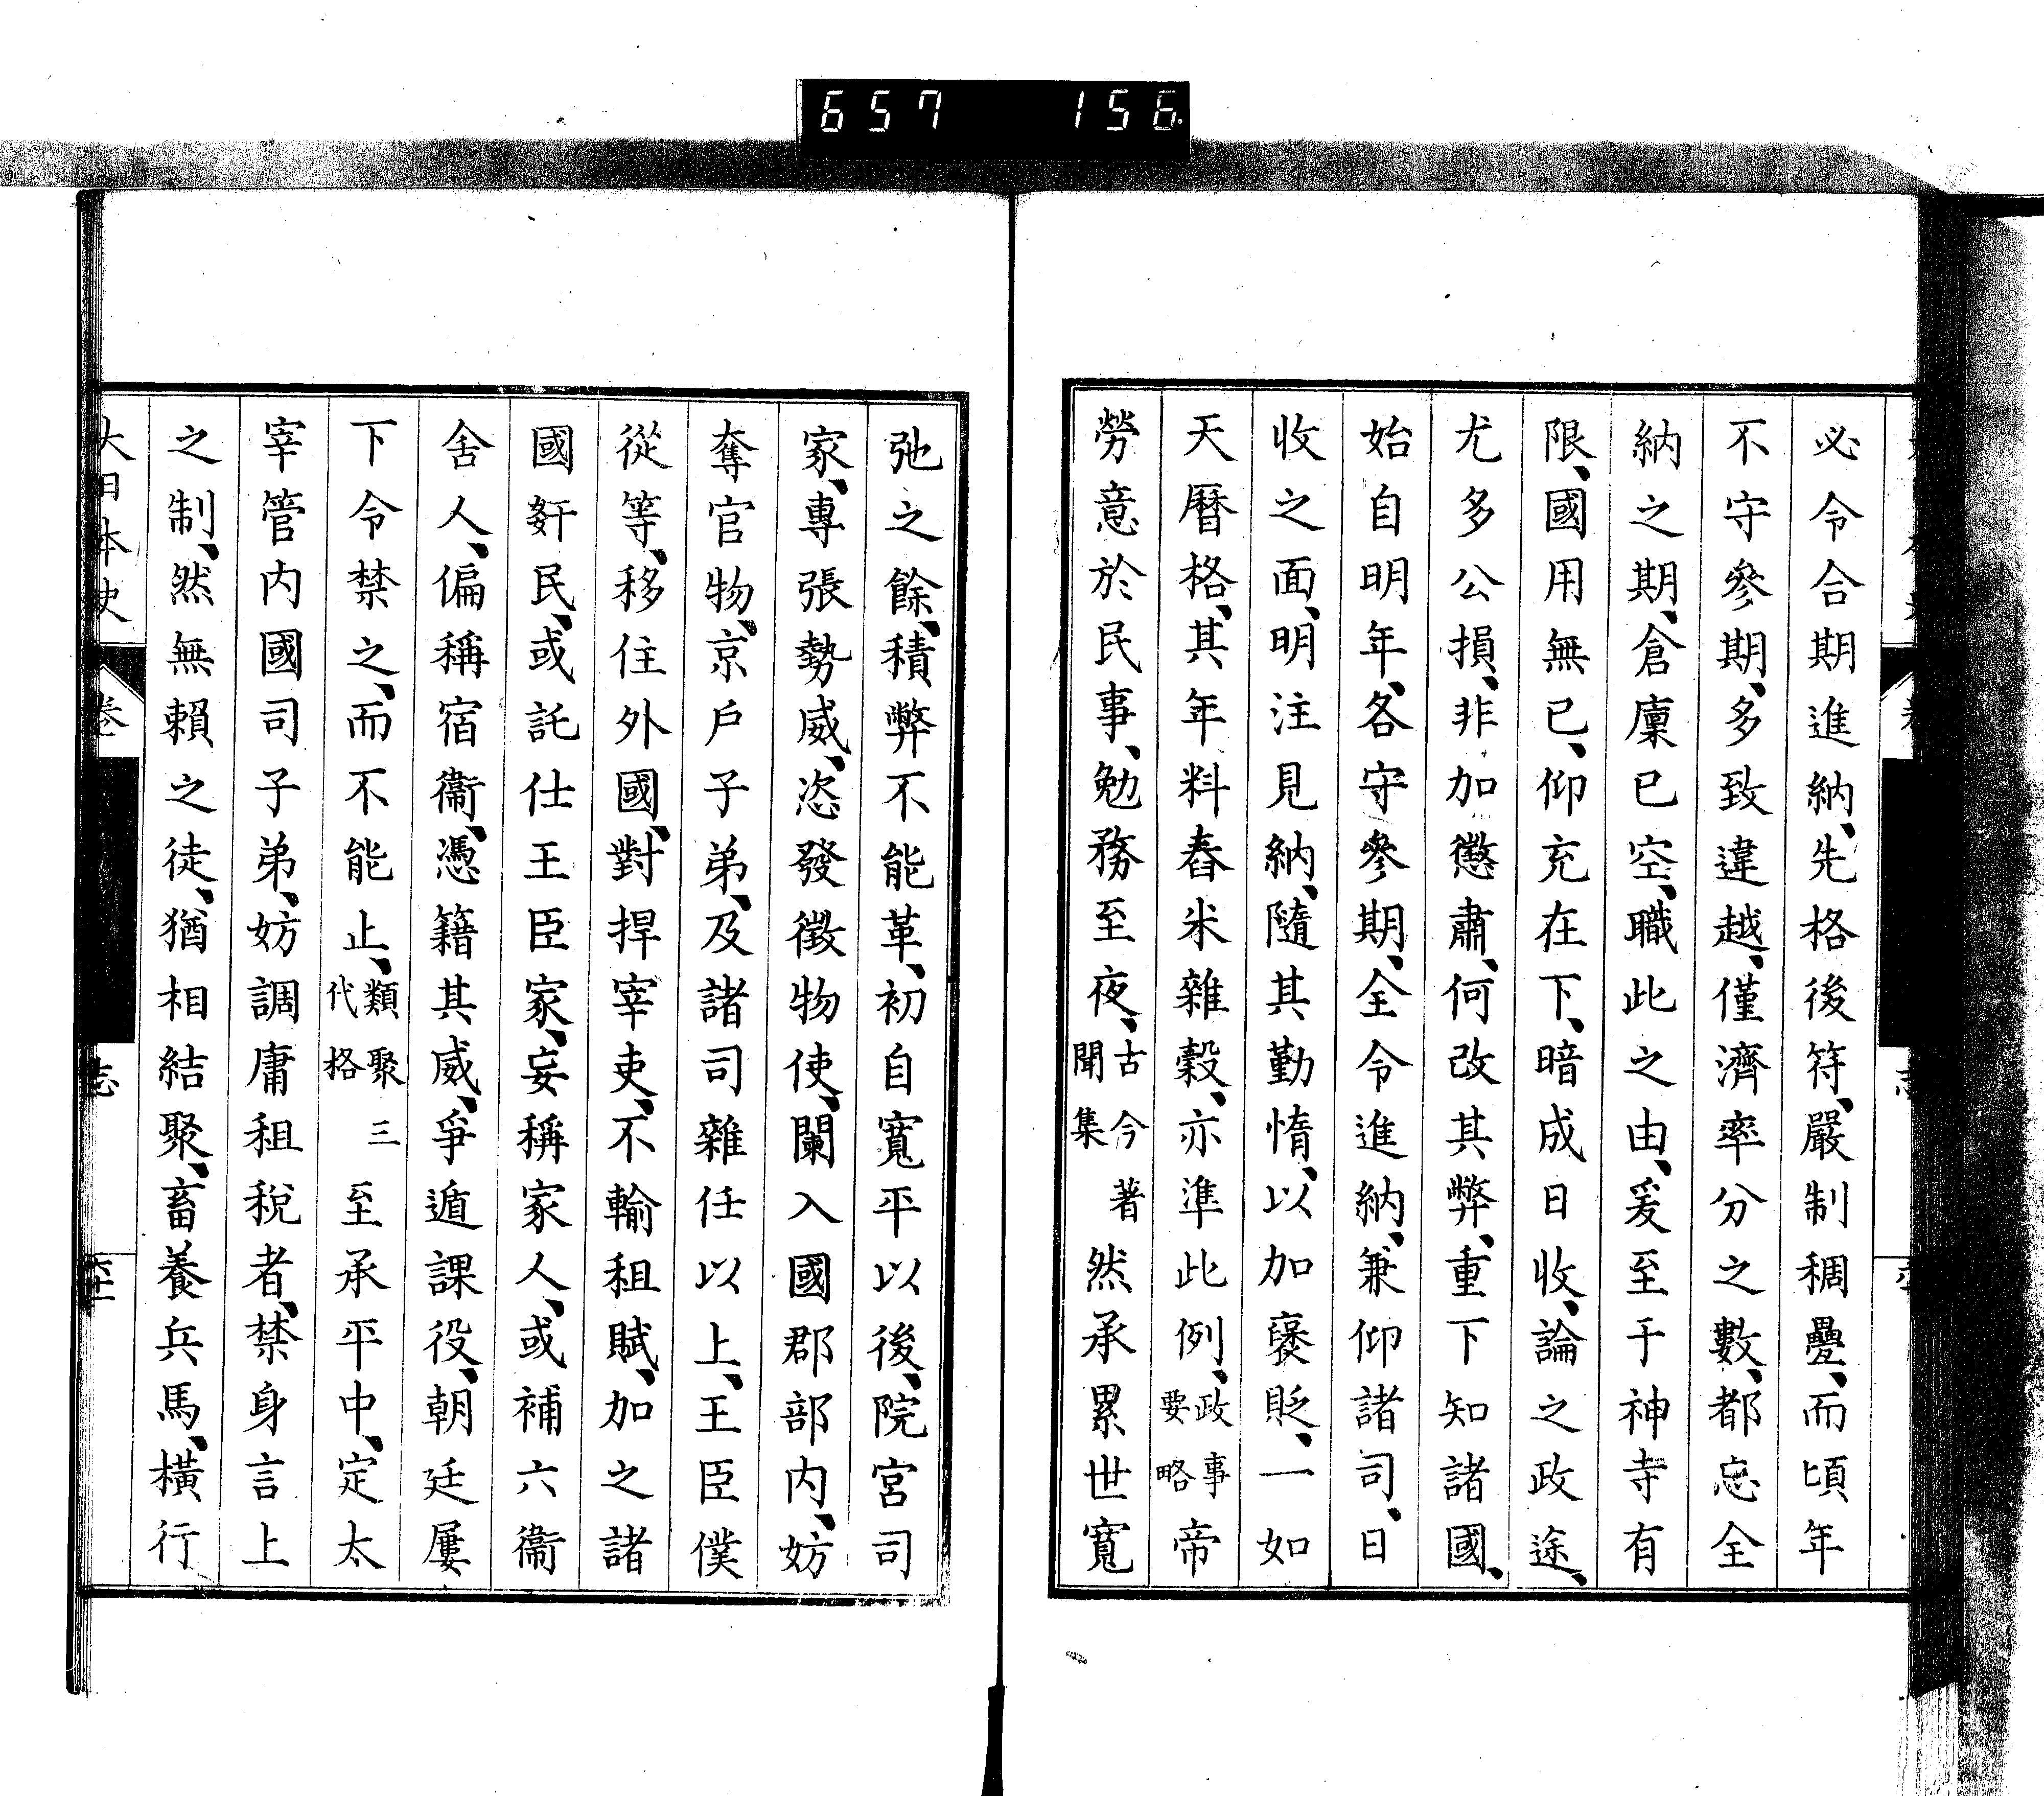 657 156
必令合期進納、先格後符、嚴制稠疊、而頃年
不守參期、多致違越、僅濟率分之數、都忘全
納之期、倉廩已空、職此之由、爰至于神寺有
限、國用無已、仰充在下、暗成日收、論之政途、
尤多公損、非加懲肅、何改其弊、重下知諸國、
始自明年、各守參期、全令進納、兼仰諸司、日
收之面、明注見納、隨其勤惰、以加襃貶、一如
天曆格、其年料舂米雜穀、亦準此例、政事要略帝
勞意於民事、勉務至夜、古今著聞集然承累世寬
弛之餘、積弊不能革、初自寬平以後、院宮司
家、專張勢威、恣發徵物使、闌入國郡部內、妨
奪官物、京戶子弟、及諸司雜任以上、王臣僕
從等、移住外國、對捍宰吏、不輸租賦、加之諸
國姧民、或託仕王臣家、妄稱家人、或補六衞
舍人、偏稱宿衞、憑籍其威、爭遁課役、朝廷屢
下令禁之、而不能止、類聚三代格至承平中、定太
宰管内國司子弟、妨調庸租稅者、禁身言上
之制、然無賴之徒、猶相結聚、畜養兵馬、橫行
大日本史 卷 志